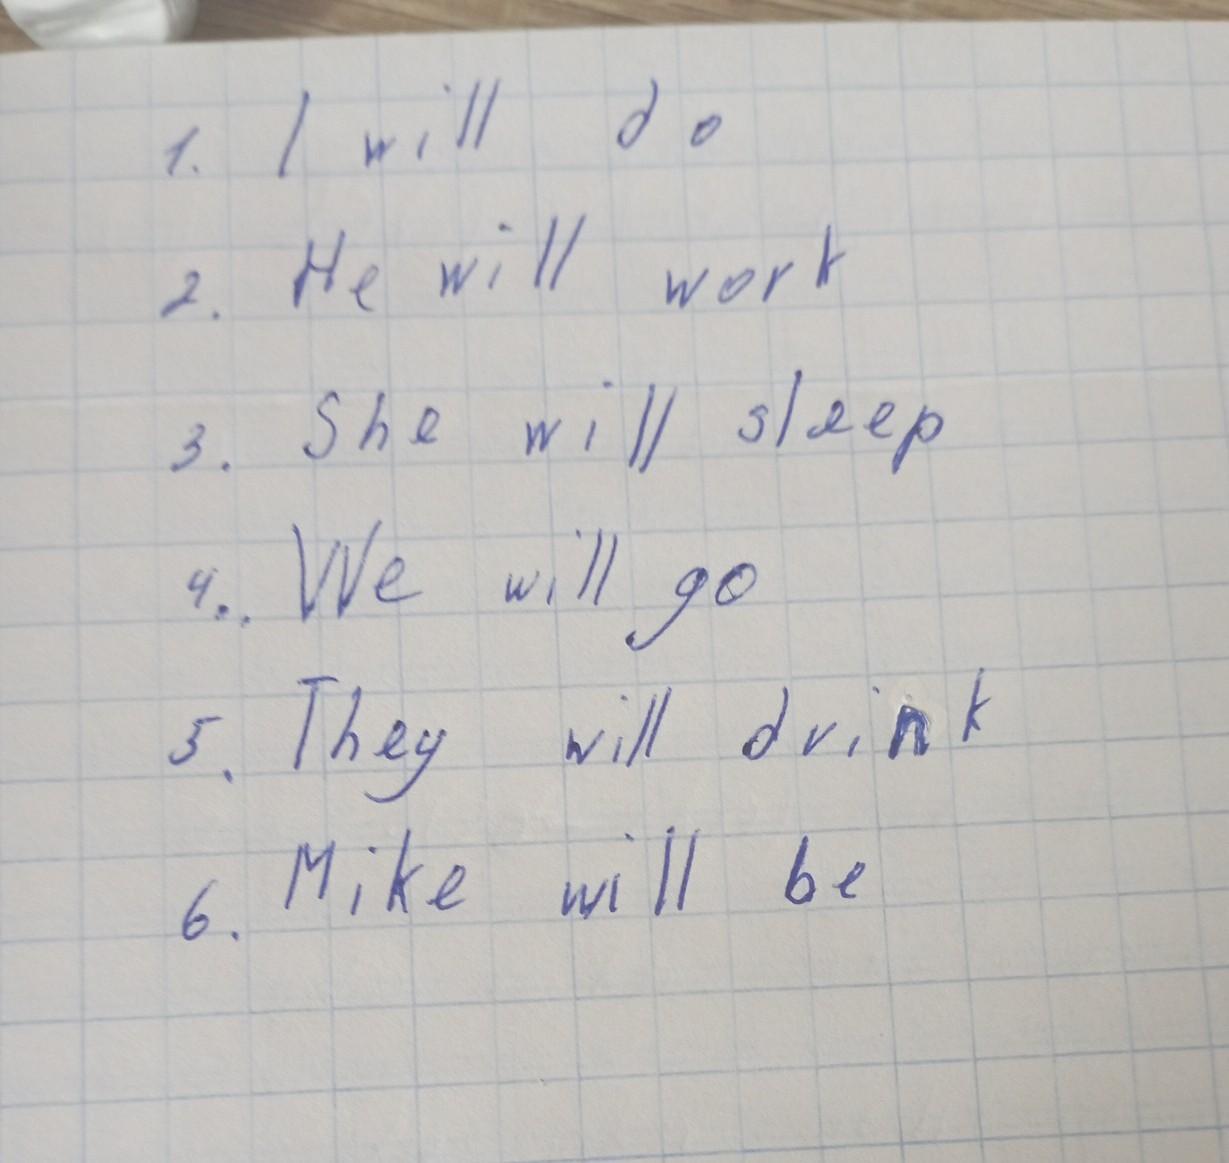 1. I will do
2. He will work
3. She will sleep
4.. We will go
5. They will drink
6. Mike will be